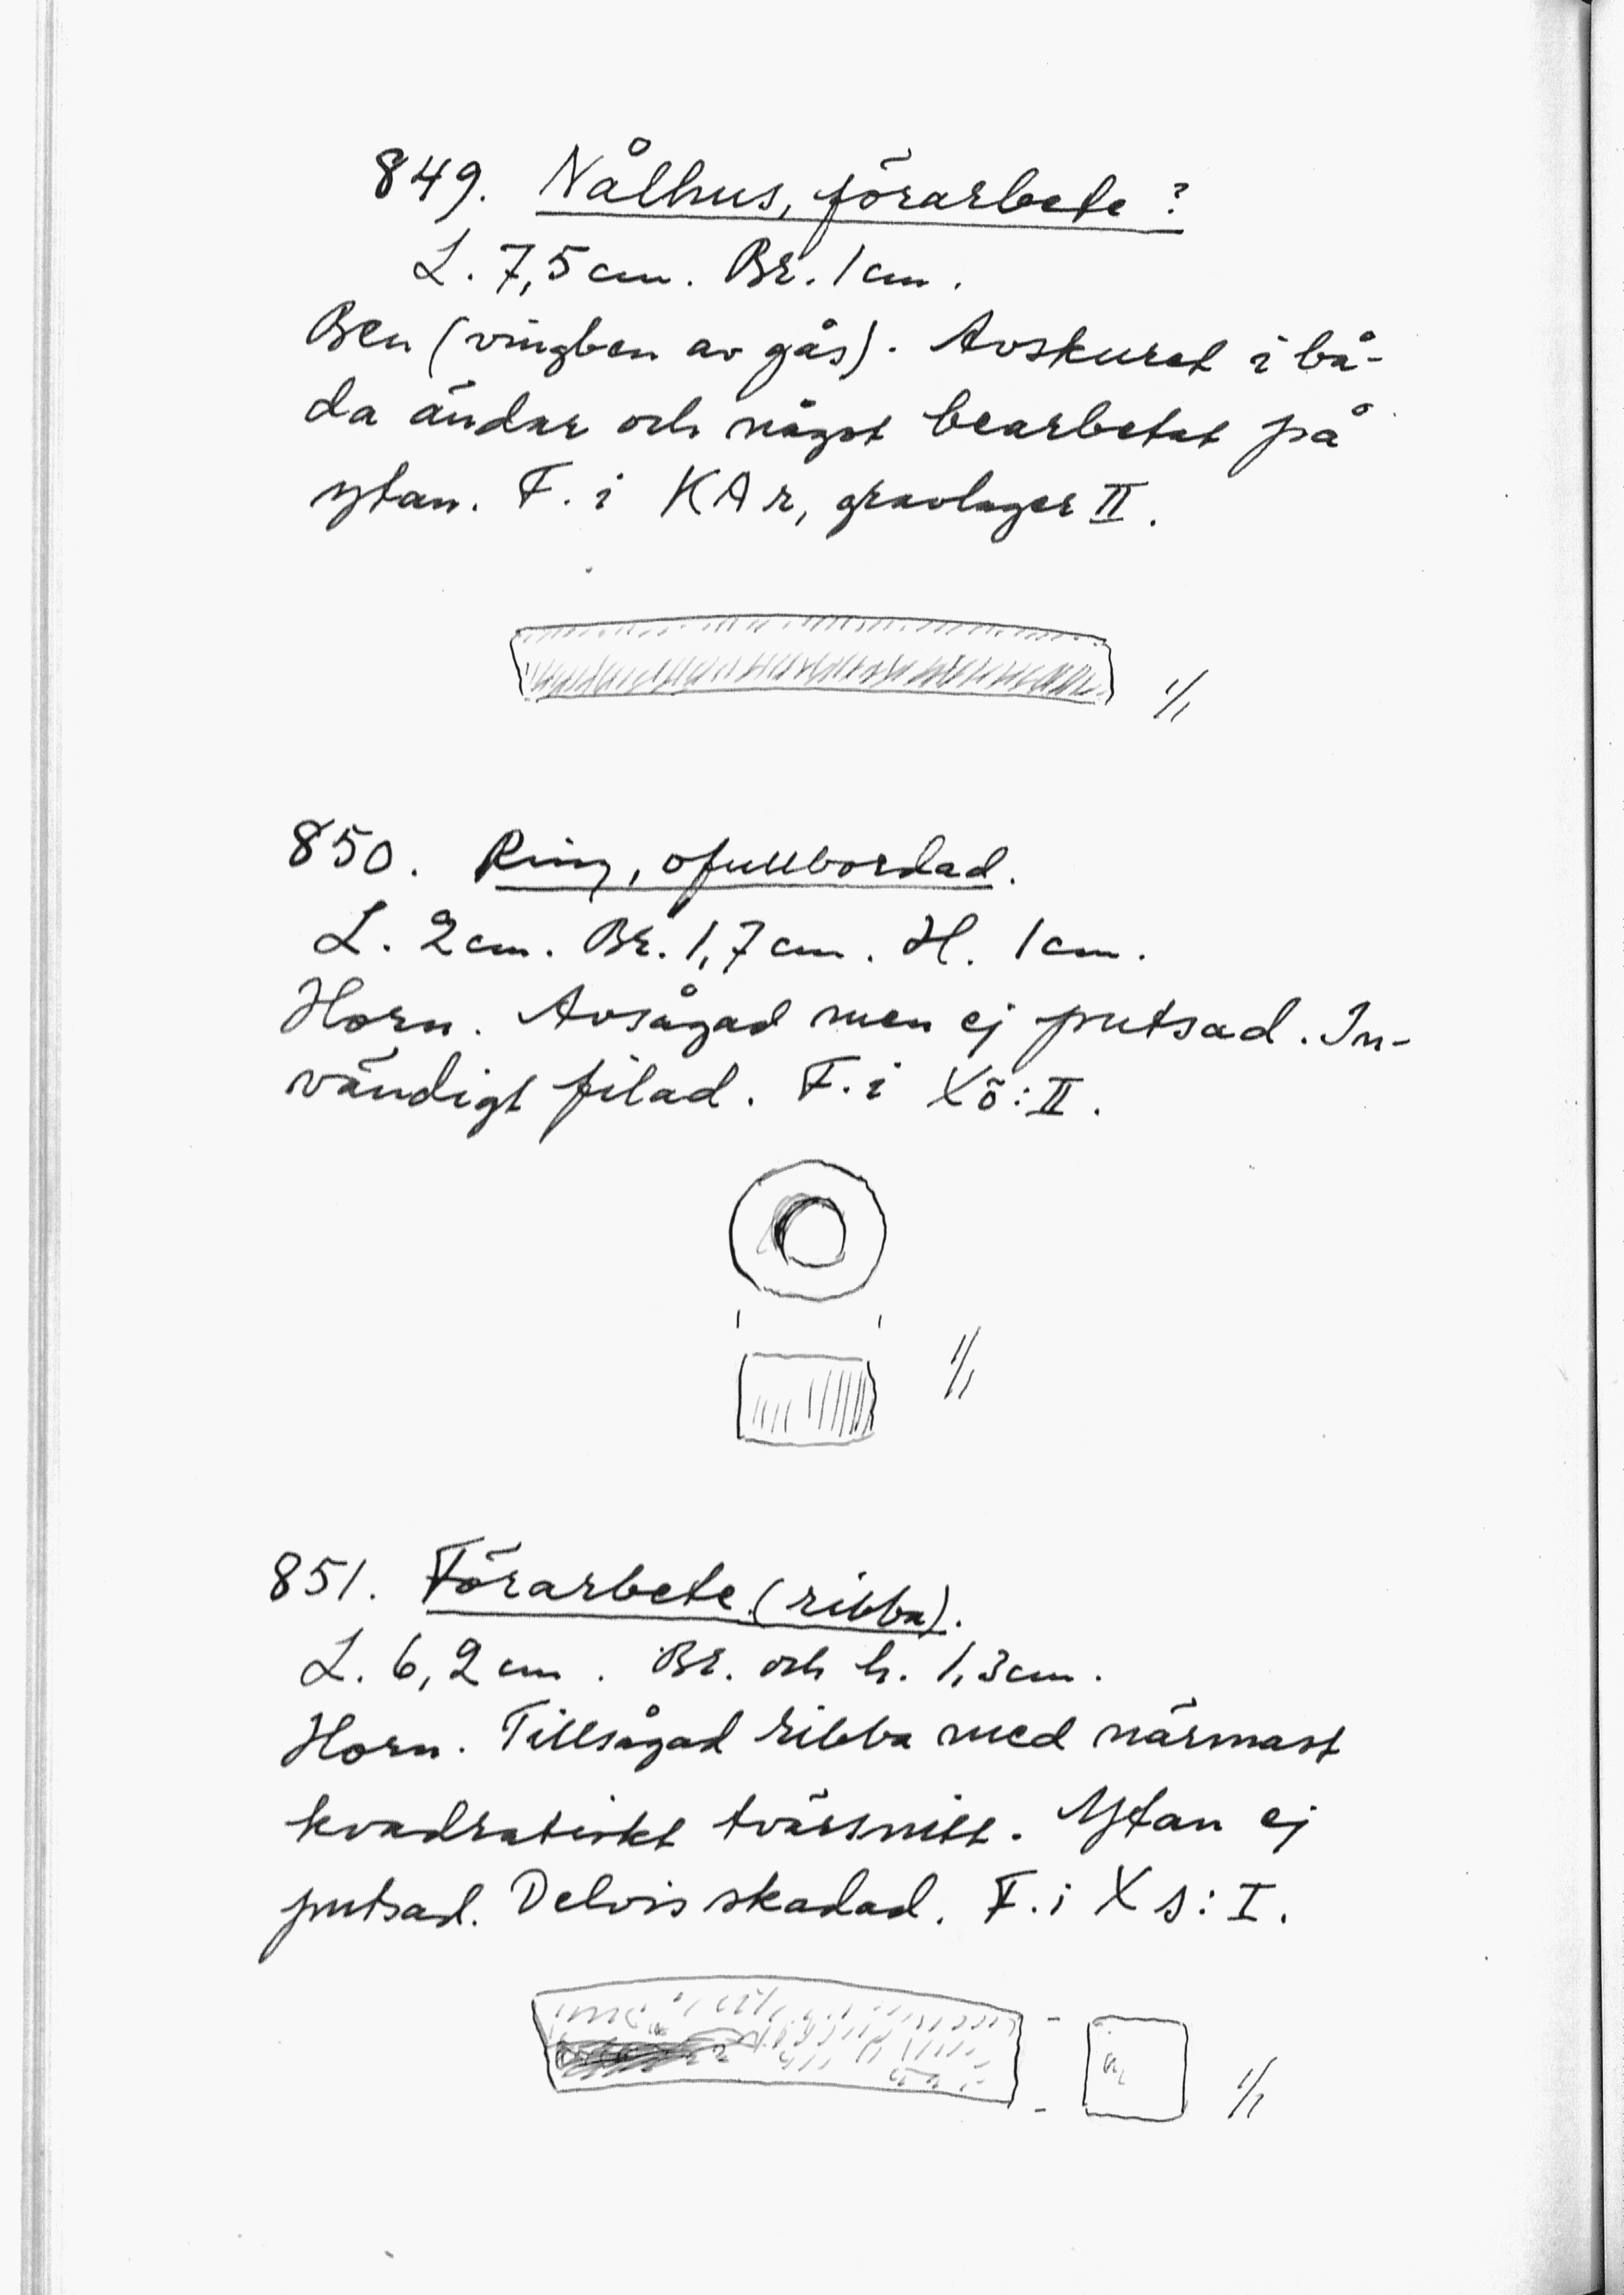 849. Nålhus, förarbete?
L. 7,5 cm. Br. 1 cm.
Ben (vingben av gås). Avskuret i bå-
da ändar och något bearbetat på
ytan. F. i KAr, gravlager II.
1/1
850. Ring, ofullbordad.
L. 2 cm. Br. 1,7 cm. H. 1 cm.
Horn. Avsågad men ej putsad. In-
vändigt filad. F. i Xö:II.
1/1
851. Förarbete (ribba).
L. 6,2 cm. Br. och h. 1,3 cm.
Horn. Tillsågad ribba med närmast
kvadratiskt tvärsnitt. Ytan ej
putsad. Delvis skadad. F. i Xs:I.
1/1